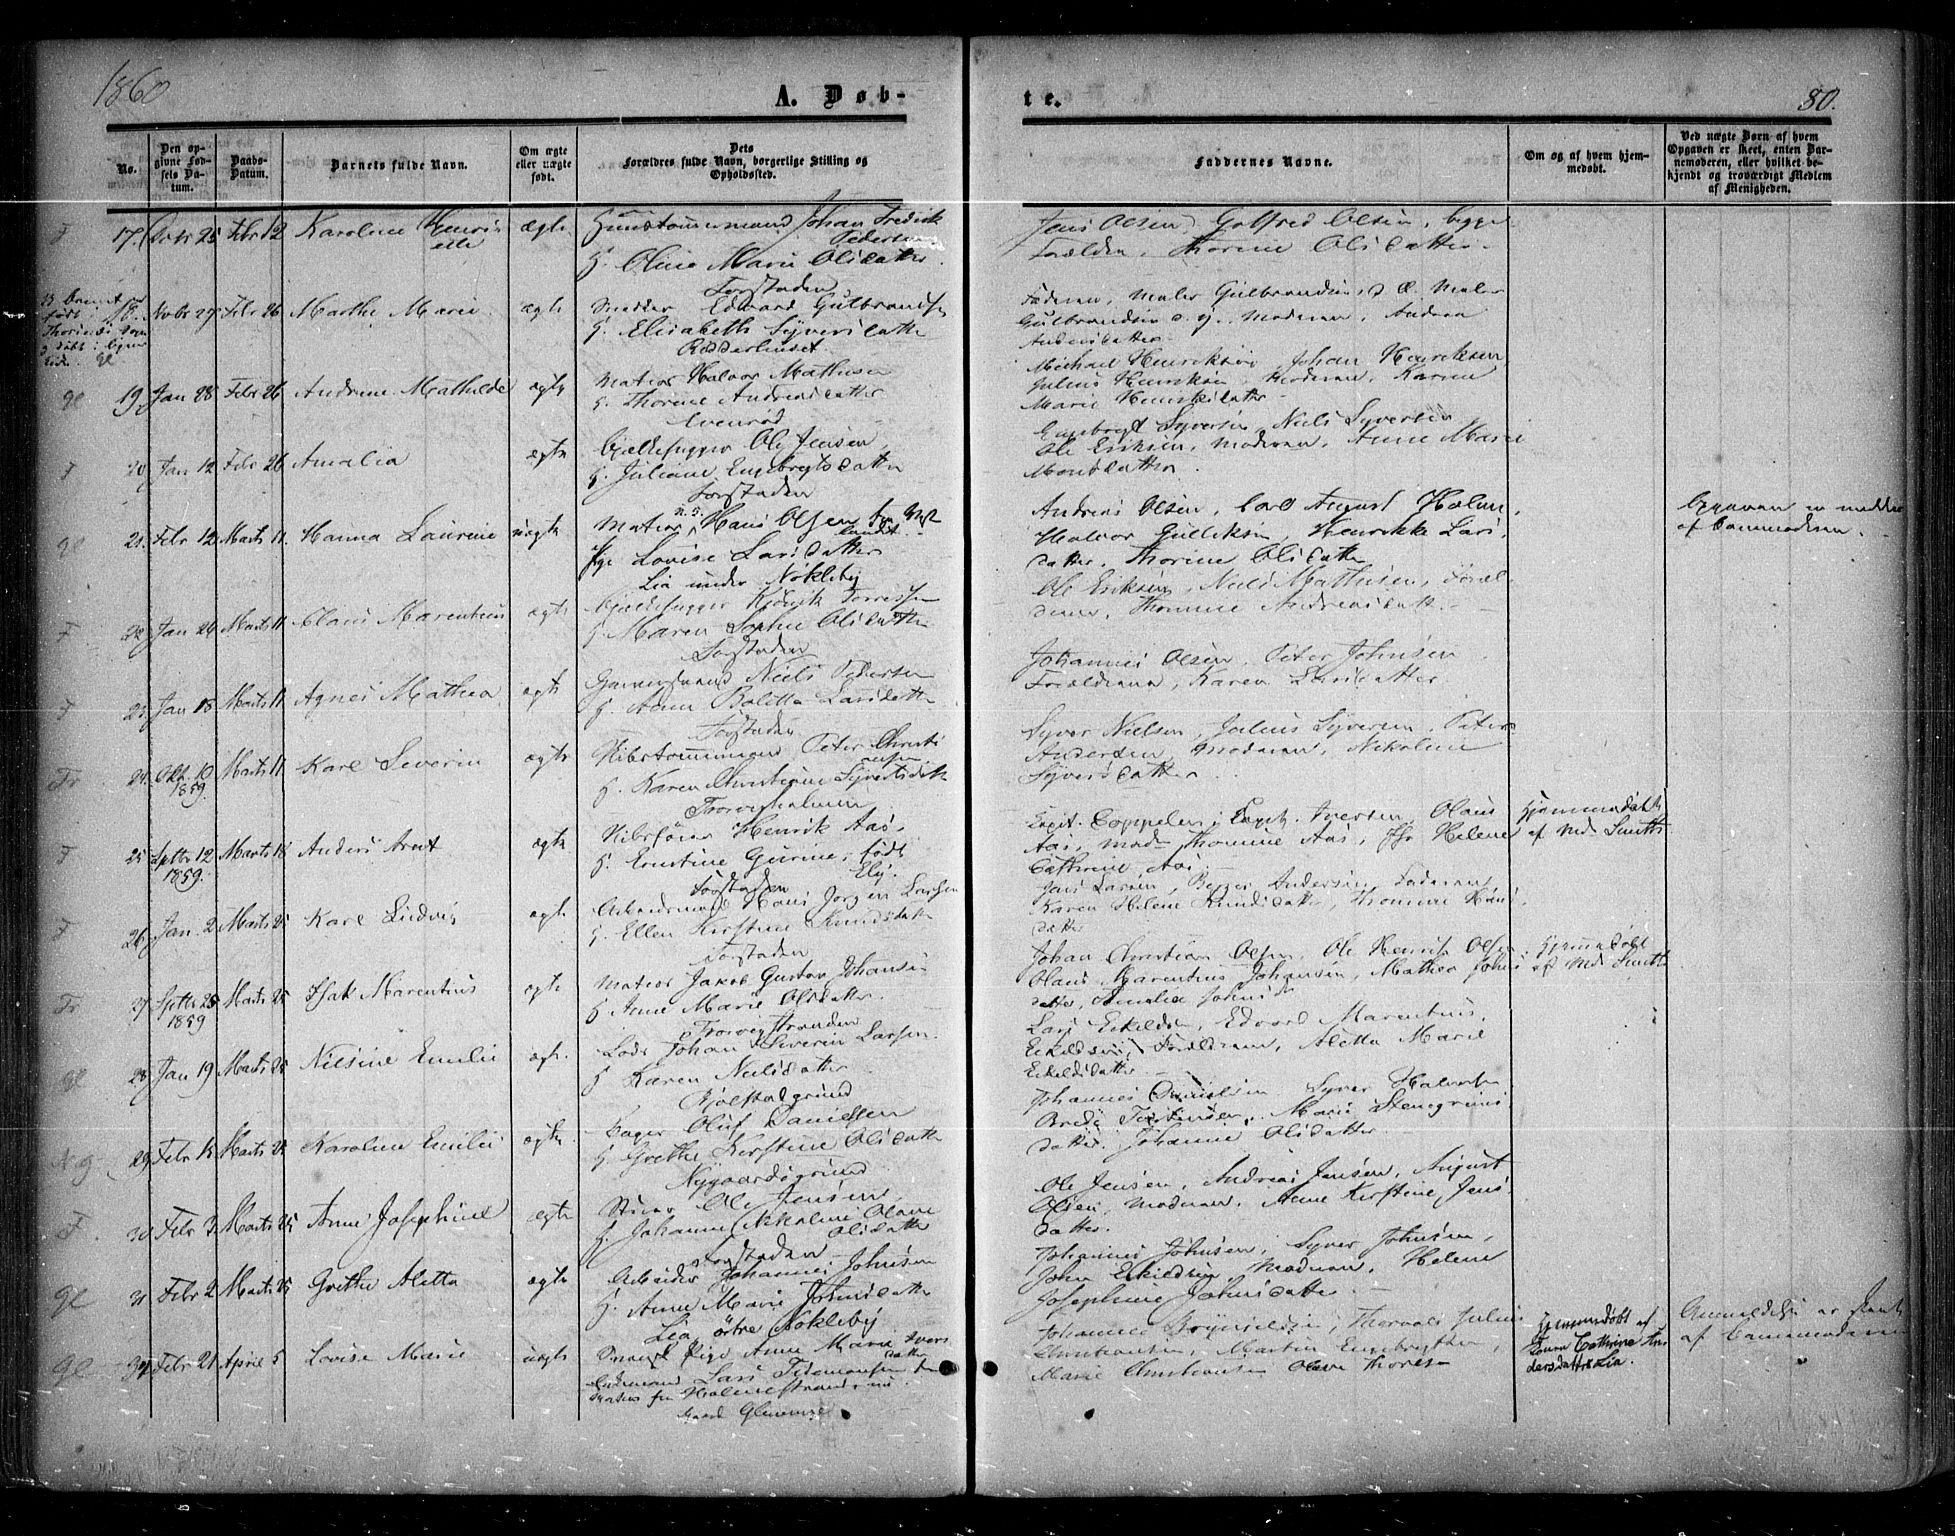 1860
A. Døb-
te.
80.
No.
Den op-
givne Fød-
sels Da-
tum.
Daabs-
Datum.
Barnets fulde Navn.
Om ægte
eller uægte
født.
Dets
Forældres fulde Navn, borgerlige Stilling og
Opholdssted.
Faddernes Navne.
Om og af hvem hjem-
medøbt.
Ved uægte Børn af hvem
Opgaven er skeet, enten Bar-
nemoderen, eller hvilket be-
kjendt og troværdigt Medlem
af Menigheden.
F 17. Febr 12 Karoline Henri
ette
ægte
Huustømmermand Johan Fredrik
Pedersen
H. Oline Marie Olsdatter
Forstaden
Jens Olsen, Gotfred Olsen, begge
Forældre, Thorine Olsdatter.
18. Novbr 27 Febr 26 Marthe Marie ægte
Edvard Gulbrandsen
H. Elisabeth Syversdatter
Ridderhuset.
Faderen, Maler Gulbrandsen,
Gulbrandsen, Moderen, Andrea
Andersdatter.
gl 19. Jan 28 Febr 26 Andrine Mathilde ægte
Matros Halvor Mathisen
H. Thorine Andreasdatter
Evenrød
Michael Henriksen, Johan Henriksen
Julius Henriksen, Moderen, Karine
Marie Henriksdatter
F 20 Jan 12 Febr 26 Amalia ægte
Bjelkehugger Ole Jensen
H. Juliane Engebrigtsdatter
Forstaden
Engebrigt Syversen, Niels Syversen
Ole Eriksen, Moderen, Anne Marie
Monsdatter
gl 21. Febr 12 Marts 11. Hanna Laurine uægte
Matros Hans Olsen
Pge Lovise Larsdatter
Lia under Nøkleby
Andreas Olsen, Carl August Holm,
Halvor Gulliksen, Henrikke Lars
datter, Thorine Olsdatter
Opgaven er meddelt
af Barnemoderen.
F 22 Jan 26 Marts 11 Olaus Marentius ægte
Bjelkehugger Torresen
H. Maren Sophie Olsdatter
Forstaden
Ole Eriksen, Niels Mathisen, Foræl-
drene, Thomine Andreasdatt.
F 23 Jan 18 Marts 11 Agnes Mathea ægte
Niels Pedersen
H. Anne Boletta Larsdatter
Forstaden
Johannes Olsen, Peter Johnsen
Forældrene, Karen Larsdatter.
Fr 24. Okt. 10
1859.
Marts 11 Karl Severin ægte
Skibstømmermand Peter Christi
ansen
H. Karen Christiane Syversdatt
Trosvigholmen
Syver Nielsen, Julius Syversen, Peter
Andersen, Moderen, Nikoline
Syversdatter
F 25 Septbr 12
1859.
Marts 18 Anders Arnt ægte
Skibsfører Henrik Aas.
H. Ernstine Gurine, født
Ely.
Forstaden
Capit. Coppelen, Capt. Iversen, Olaus
Aas, Mad. Thomine Aas, Jfr Helene
Cathrine Aas
Hjemmedøbt
af Md. Smith
F 26 Jan. 2 Marts 25 Karl Ludvig ægte
Arbeidsmand Hans Jørgen Larsen
H. Ellen Kirstine Knudsdatte
Forstaden
Jens Larsen, Berger Andersen, Faderen
Karen Helene Knudsdatter, Thomine Hans
datter
Fr 27 Septbr 25
1859
Marts 25 Isak Marentius ægte
Matros Jakob Gustav Johansen
H Anne Marie Olsdatter.
Trosvigstranden
Johan Christian Olsen, Ole Henrik Olsen
Olaus Marentius Johansen, Mathea Johns
datter, Amalia Johnsdr
Hjemmedøbt
af Md. Smith
gl 28 Jan 19 Marts 25 Nilsine Emilie ægte.
Lods Johan Severin Larsen.
H Karen Nielsdatter
Bjølstadgrund
Lars Eskildsen, Edvard Marentius,
Eskildsen, Forældrene, Aletta Marie
Eskildsdatter.
N.g 29 Febr Marts 25 Karoline Emilie ægte
Bager Oluf Danielsen
H Grethe Kirstine Olsdatter
Nygaardsgrund
Johannes Danielsen Syver Halvorsen
Brede Torstensen, Marie Stenegrims
datter, Johanne Olsdatter.
F. 30 Febr 3. Marts 25 Anne Josephine ægte
Ole Jensen
H. Johanne Nikoline Olave
Olsdatter
Forstaden
Ole Jensen, Andreas Jensen, August
Olsen, Moderen, Anne Kirstine Jens-
datter.
gl 31 Febr 2 Marts 25 Grethe Aletta ægte
Arbeider Johannes Johnsen
H. Anne Marie Johnsdatter
Lia østre Nøkleby
Johannes Johnsen, Syver Johnsen,
John Eskildsen, Moderen, Helene
Josephine Johnsdatter
gl 32 Febr 21 April 5 Lovise Marie uægte
Pige Anne Marie Ivers
datter
Lars Tidemansen
Matros fra Holmestrand, nu
Johannes Thorvald Julius
Christiansen, Martin Engebrigtsen,
Marie Christiansen Olava Thoresen
Hjemmedøbt af
Karen Cathrine An-
dersdatter Lia.
Anmeldelsen er skeet
af Barnemoderen